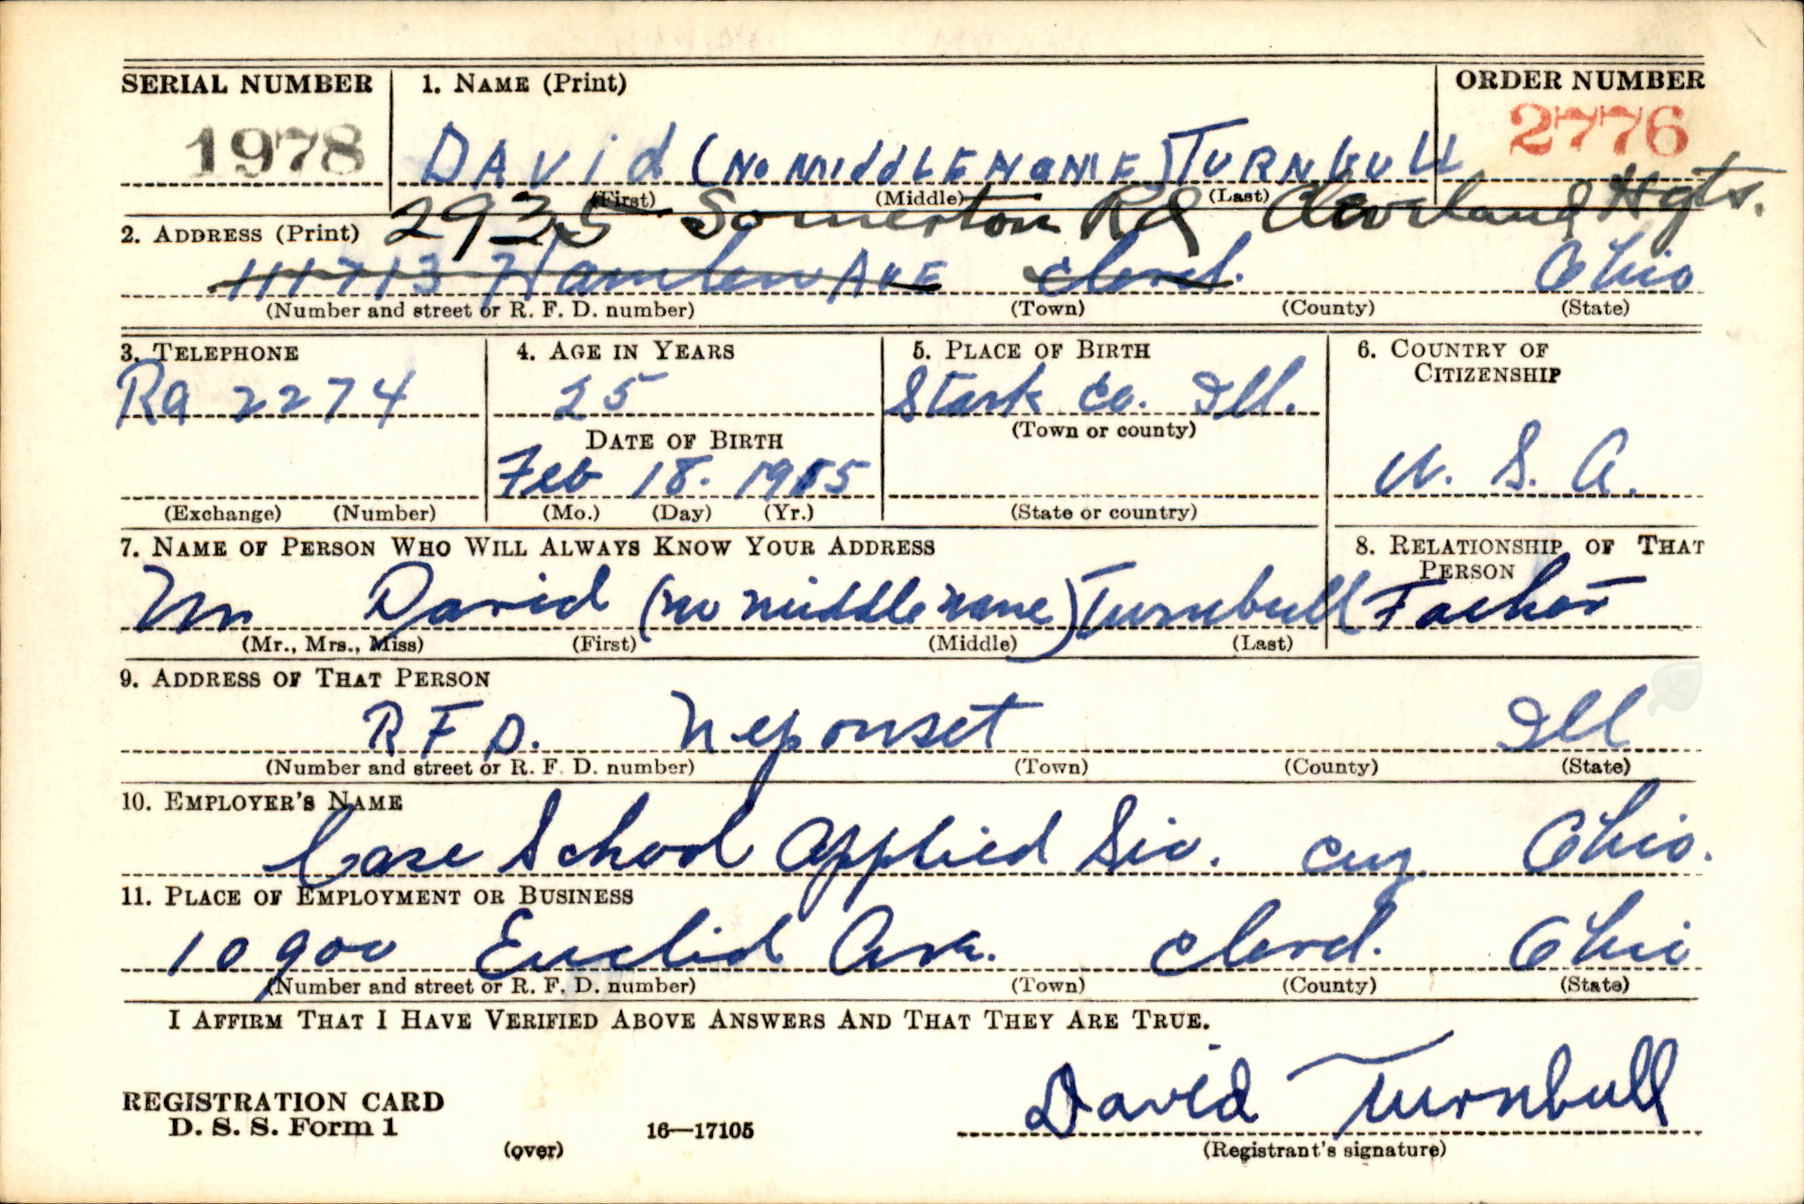 SERIAL NUMBER 1. NAME (Print) ORDER NUMBER
1978 DAVid (No MIddLE NAME) TURNbULL 2776
(First) (Middle) (Last)
2935 Somerton Rd Cleveland Hgts.
2. ADDRESS (Print)
Ave Clevd. Ohio
(Number and street or R. F. D. number) (Town) (County) (State)
3. TELEPHONE 4. AGE IN YEARS 5. PLACE OF BIRTH 6. COUNTRY OF CITIZENSHIP
Ra 2274 25 Stark Co. Ill.
DATE OF BIRTH (Town or county)
Feb 18. 1915 U. S. A.
(Exchange) (Number) (Mo.) (Day) (Yr.) (State or country)
7. NAME OF PERSON WHO WILL ALWAYS KNOW YOUR ADDRESS 8. RELATIONSHIP OF THAT PERSON
Mr David (no middle name) Turnbull Father
(Mr., Mrs., Miss) (First) (Middle) (Last)
9. ADDRESS OF THAT PERSON
R F D. Neponset Ill
(Number and street or R. F. D. number) (Town) (County) (State)
10. EMPLOYER'S NAME
Case School Applied Sic. Cuy. Ohio.
11. PLACE OF EMPLOYMENT OR BUSINESS
10900 Euclid Ave. Clevd. Ohio
(Number and street or R. F. D. number) (Town) (County) (State)
I AFFIRM THAT I HAVE VERIFIED ABOVE ANSWERS AND THAT THEY ARE TRUE.
David Turnbull
REGISTRATION CARD
D. S. S. Form 1 16—17105
(over) (Registrant's signature)